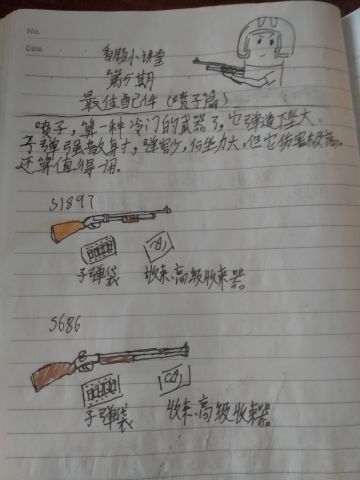 No.
Date.
小讲堂
第5期
最佳配件(喷子篇)
喷子,算一种冷门的武器了,它弹道下坠大,
子弹弹数少,后坐力大,但它伤害极高。
还算值得用。
S1897
子弹袋 收束、高级收束器。
S686
子弹袋 收束、高级收束器。